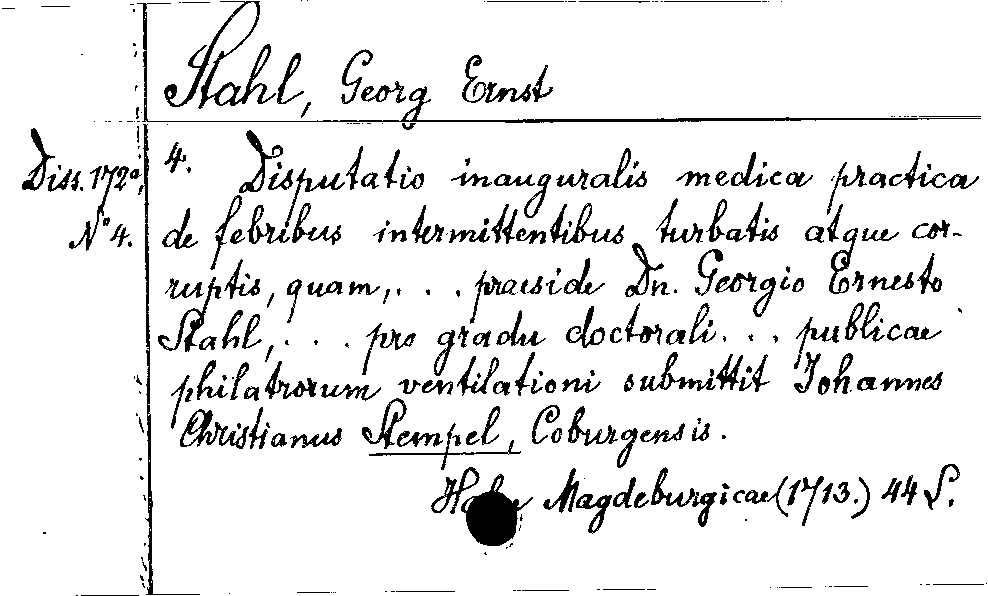 Stahl, Georg Ernst
Diss. 172a,
N° 4.
4. Disputatio inauguralis medica practica
de febribus intermittentibus turbatis atque cor-
ruptis, quam, . . . praeside Dn. Georgio Ernesto
Stahl, . . . pro gradu doctorali . . . publicae
philatrorum ventilationi submittit Johannes
Christianus Stempel, Coburgensis.
Magdeburgicae (1713.) 44 S.